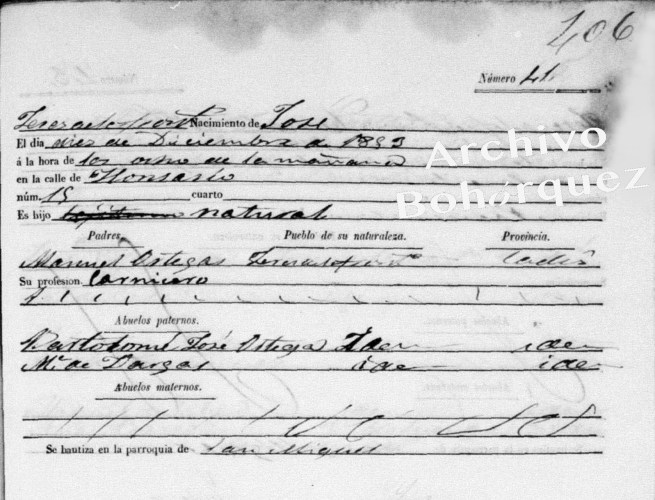 406
Número 41
Nacimiento de José
El dia diez de Diciembre de 1853
á la hora de las ocho de la mañana
en la calle de Honsario
núm. 15 cuarto
Es hijo natural
Padres. Pueblo de su naturaleza. Provincia.
Manuel Ortega Cadiz
Su profesion Carnicero
Abuelos paternos.
Bartolomé José Ortega Idem idem
Mª de Vargas ide ide
Abuelos maternos.
Se bautiza en la parroquia de San Miguel
Archivo
Bohórquez